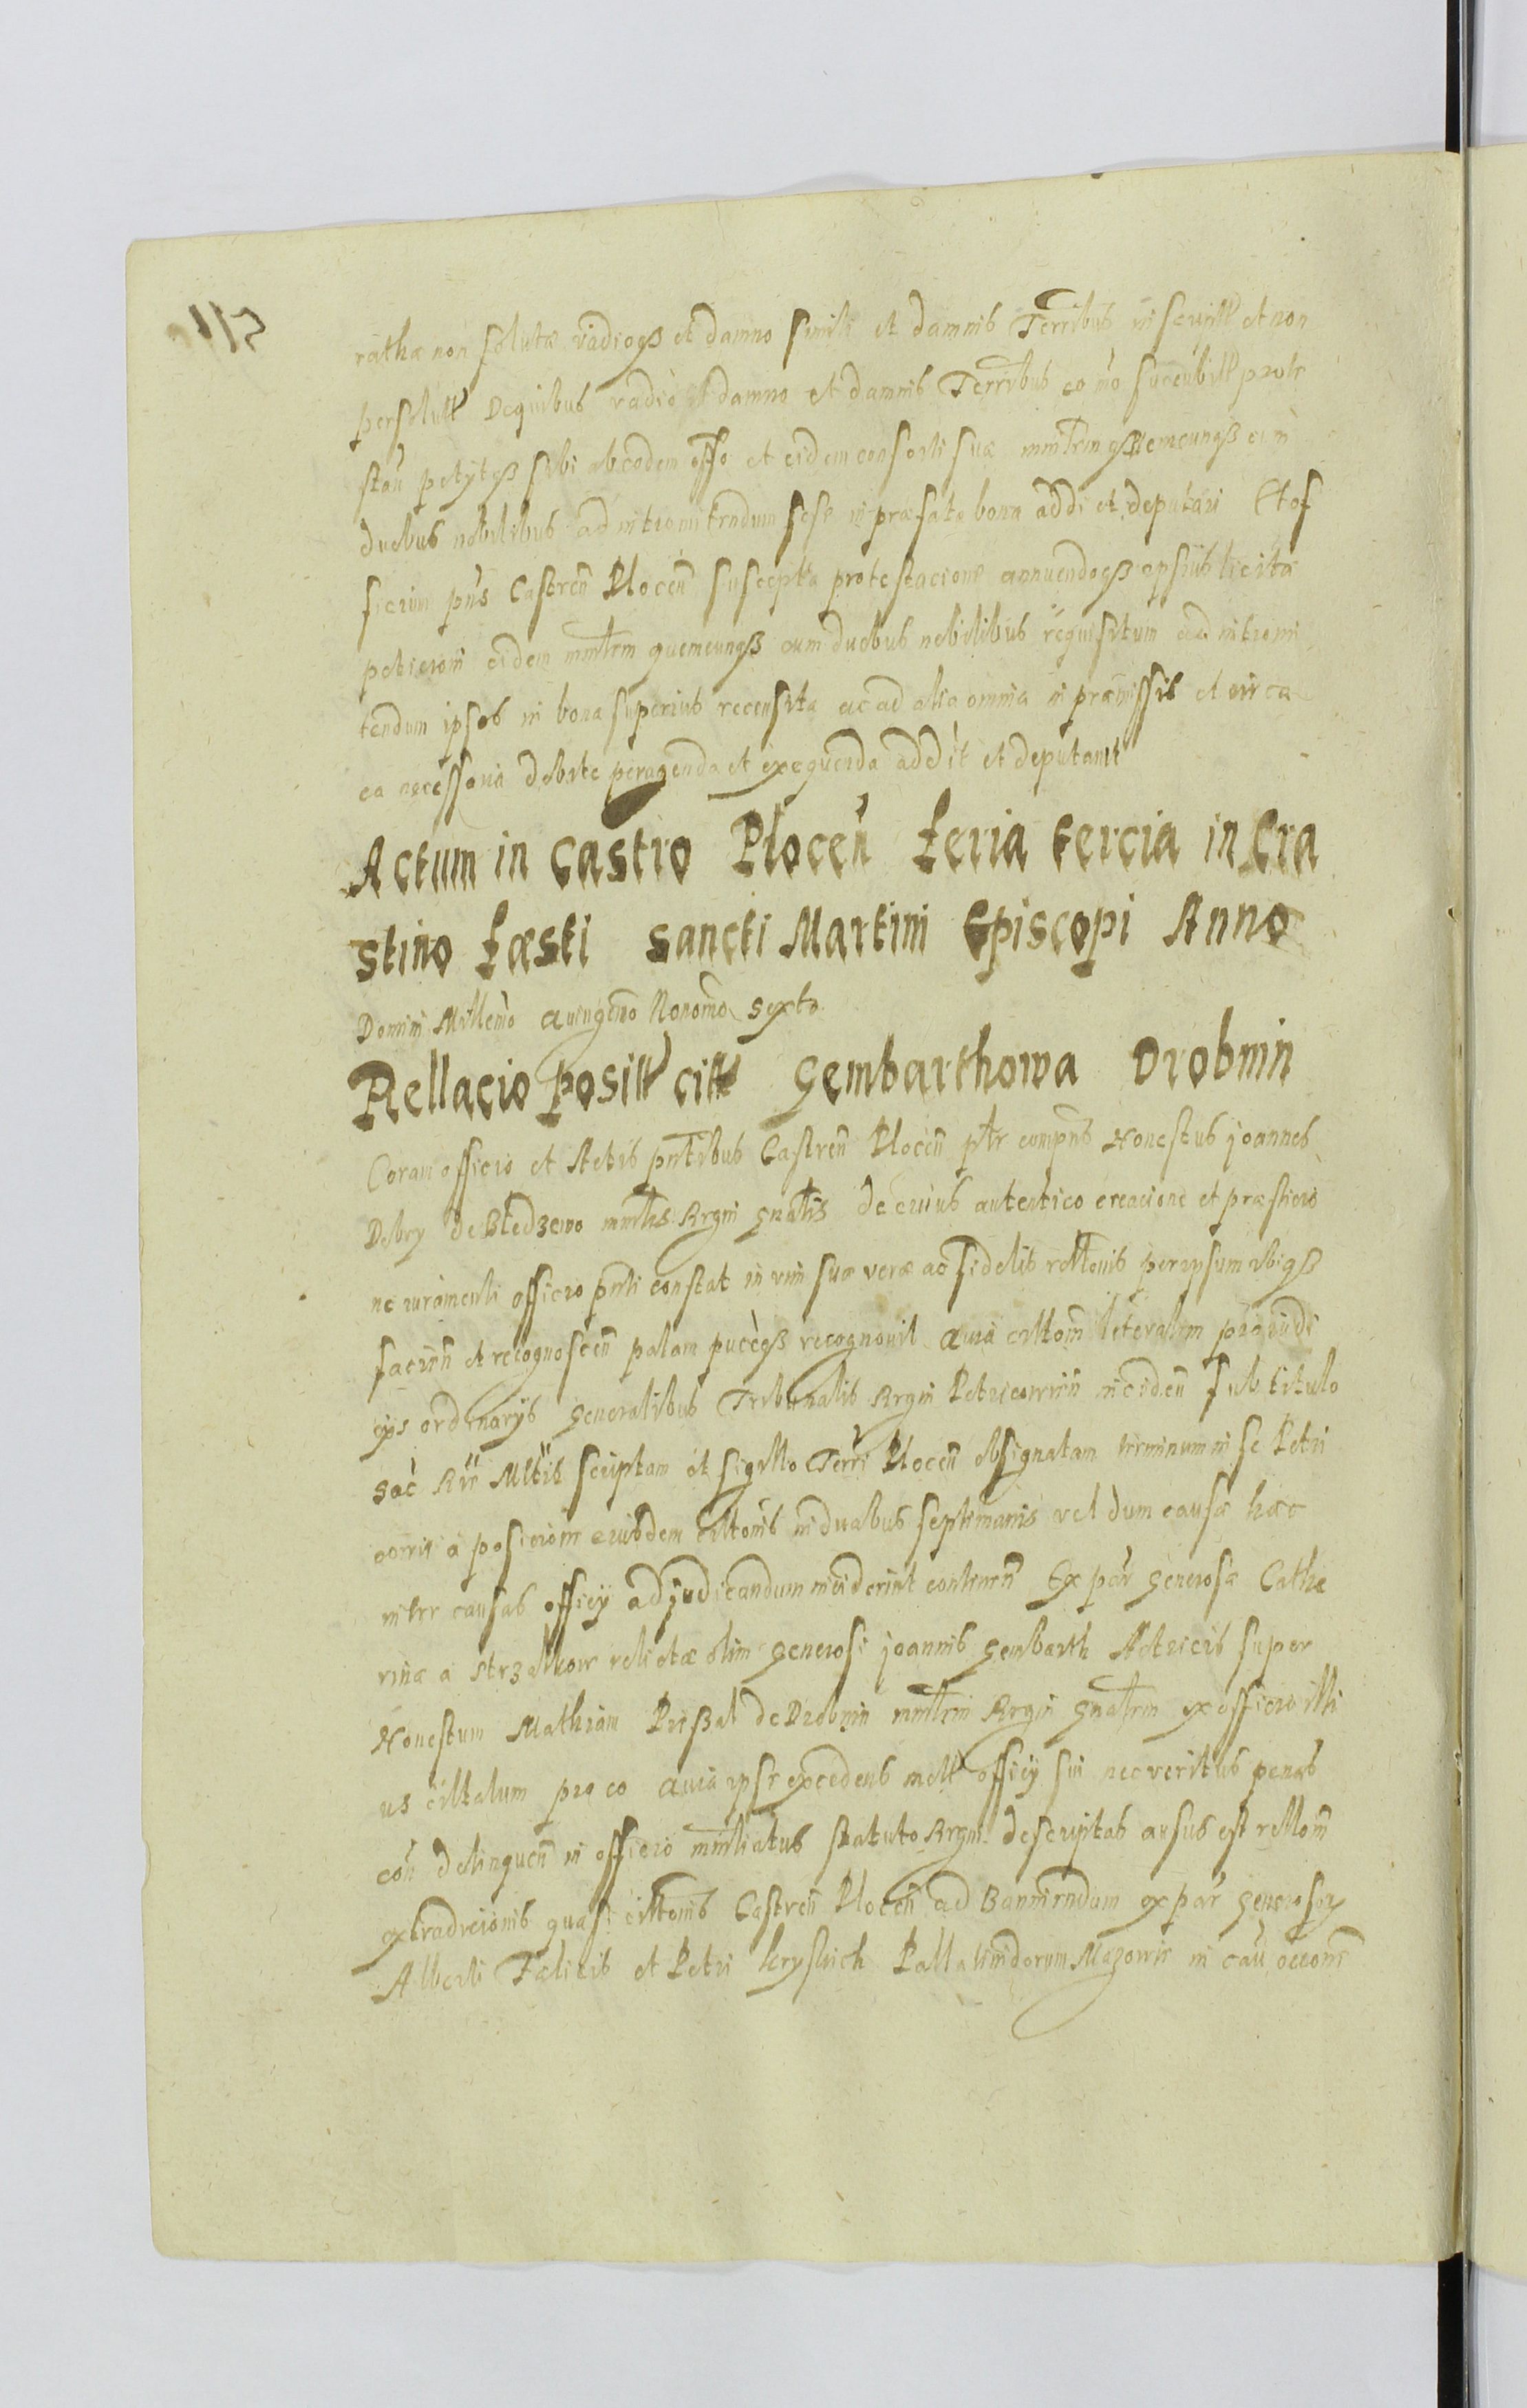 rathæ non solutæ vadioqß et damno simili et damnis Terribus
persolutt Dequibus vadio et damno et damnis Terribus eo mo succubitt prote
stan petytqß sibi ab eodem offo et eidem consorti suæ mnlrm quemcunqß cum
duobus nobilibus ad intromittendum sese in præfata bona addi et deputari Et of
ficium pns Castren Plocen suscepta protestacione annuendoqß ipsius licitæ
peticioni eidem mnlrm quemcunqß cum duobus nobilibus requisitum ad intromi
tendum ipsos in bona superius recensita ac ad alia omnia in præmissis et circa
ea necessaria debite peragenda et exequenda addit et deputavit
Actum in Castro Plocen feria tercia in Cra
stino fæsti sancti Martini Episcopi Anno
Domini Millemo Quingeno Nonomo sexto
Rellacio positt citt Gembarthowa Drobnin
Coram officio et Actis pntibus Castren Plocen ptr compns Honestus Joannes
Debry de Bledzewo mnlrs Regni gnalis de cuius autentico creacione et præsticio
ne iuramenti officio pnti constat in vim suæ veræ ac fidelis rellonis per ipsum ibiqß
facien et recognoscen palam puceqß recognovit Quia cittom literalem pro iudi
cys ordinarys generalibus Tribunalis Regni Petricovien inciden sub titulo
Sac Rie Mttis scriptam et sigillo Terri Plocen obsignatam terminum in se Petri
covie a posicione eiusdem cittonis in duabus septimanis vel dum causa hæc
inter causas officy adjudicandum inciderint continen Ex par Generosæ Cathe
rinæ a Strzalkow relictæ olim Generosi Joannis Gembarth Actricis super
Honestum Mathiam Prßal de Drobnin mnlrm Regni gnalrm ex officio illi
us cittatum pro eo Quia ipse excedens mett officy sui nec veritus penas
con delinquen in officio mnlriatus statuto Regni descriptas ausus est rellom
extradicionis quasi cittonis Castren Plocen ad Banniendum ex par Generosor
Alberti Fælicis et Petri kryskich Pallatinidorum Mazowie in cau occoni